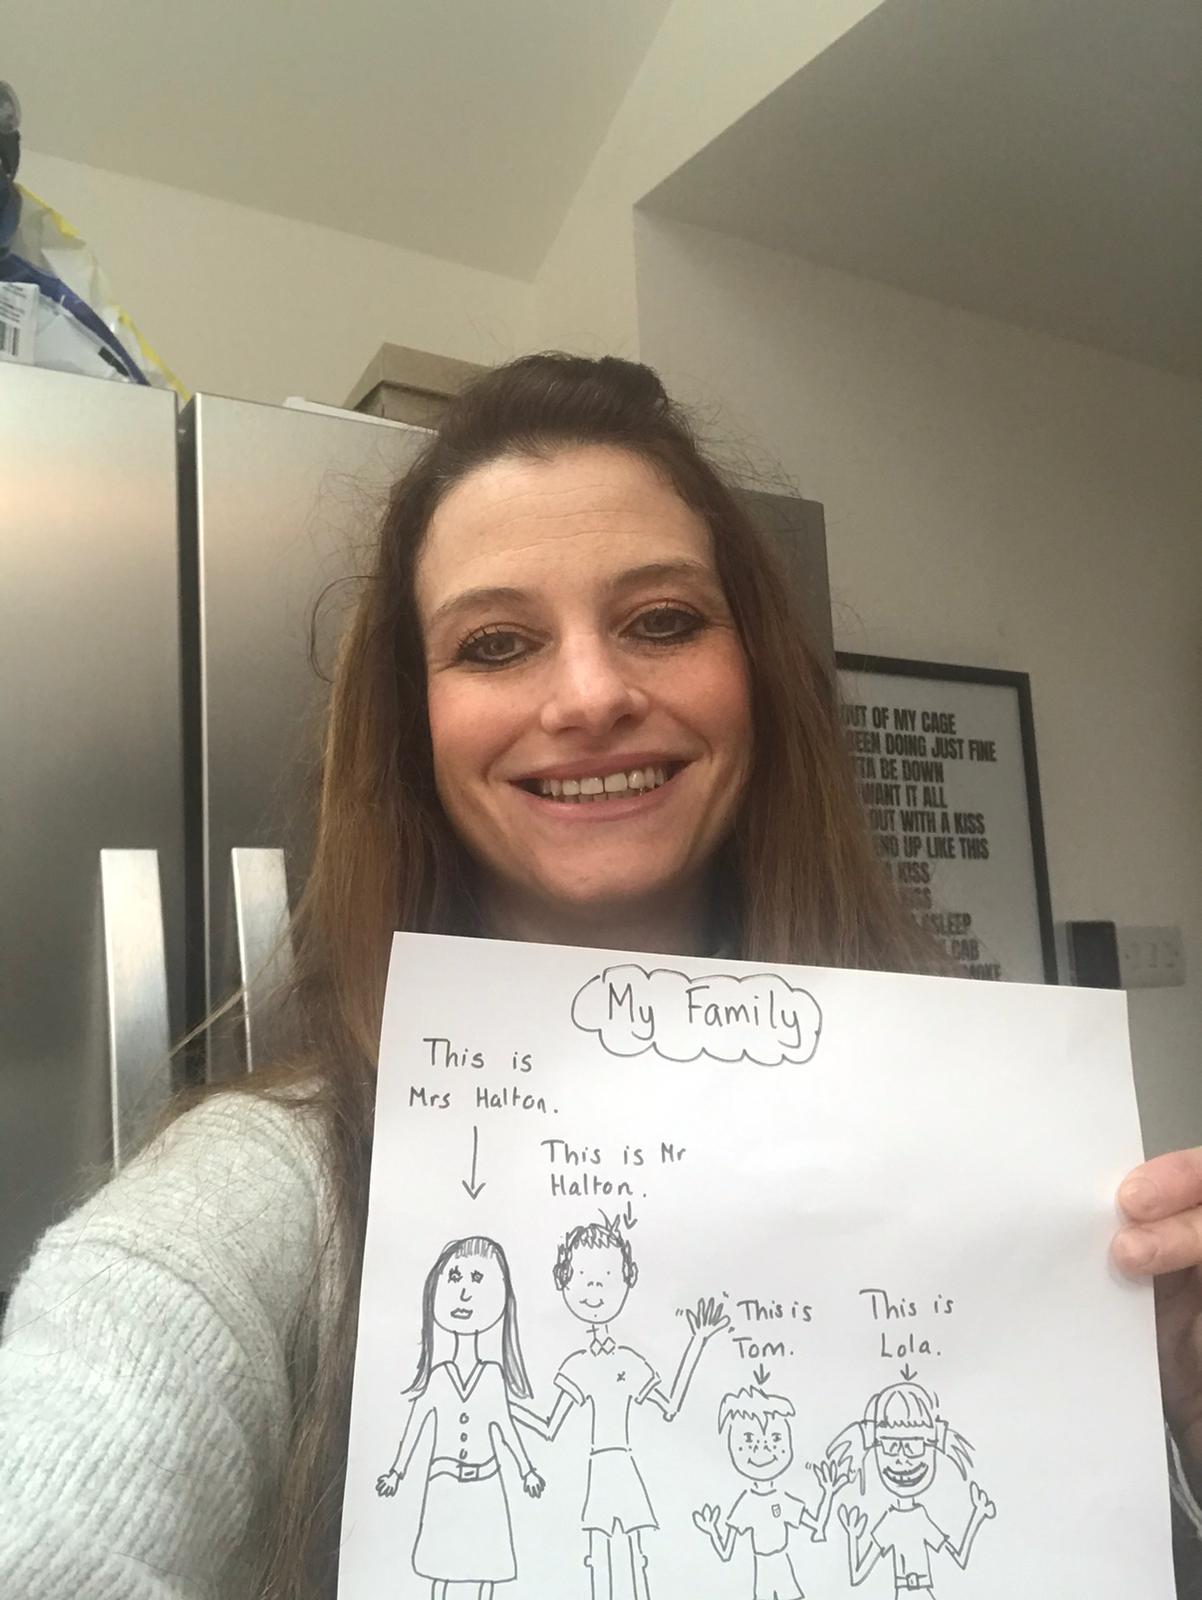 OUT OF MY CAGE
BEEN DOING JUST FINE
BE DOWN
WANT IT ALL
OUT WITH A KISS
END UP LIKE THIS
KISS
KISS
ASLEEP
CAB
SMOKE
My Family
This is
Mrs Halton.
This is Mr
Halton.
This is
Tom.
This is
Lola.